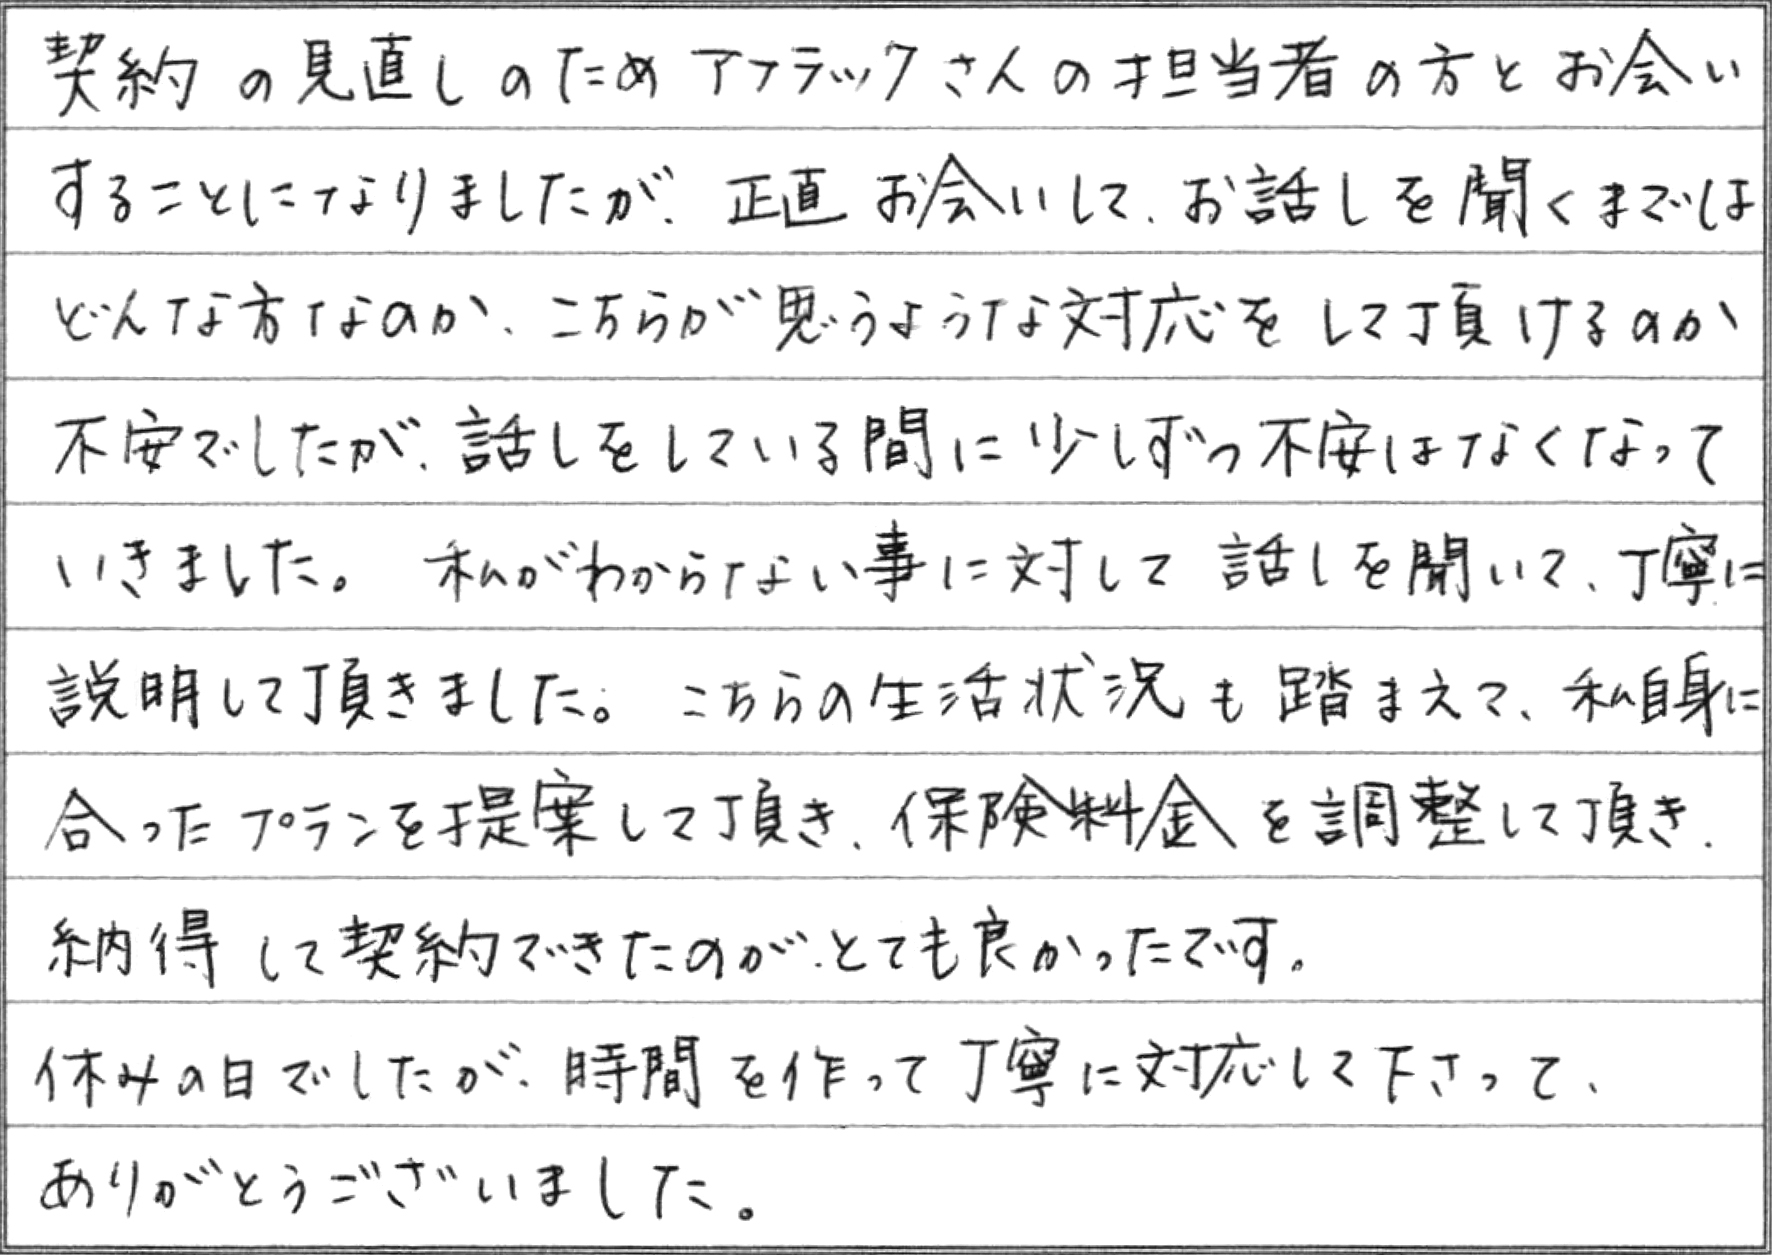 契約の見直しのためアフラックさんの担当者の方とお会い
することになりましたが、正直お会いして、お話しを聞くまでは
どんな方なのか、こちらが思うような対応をして頂けるのか
不安でしたが、話しをしている間に少しずつ不安はなくなって
いきました。私がわからない事に対して話しを聞いて、丁寧に
説明して頂きました。こちらの生活状況も踏まえて、私自身に
合ったプランを提案して頂き、保険料金を調整して頂き、
納得して契約できたのが、とても良かったです。
休みの日でしたが、時間を作って丁寧に対応して下さって、
ありがとうございました。